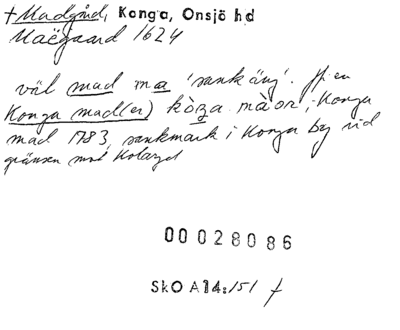 † Madgård, Konga, Onsjö hd
Maëgaard 1624
väl mad ma 'sank äng'. Jfr en
Konga mad(er) kòza màor, Konga
mad 1783, sankmark i Konga by vid
gränsen mot
00028086
SkO A14:151 f